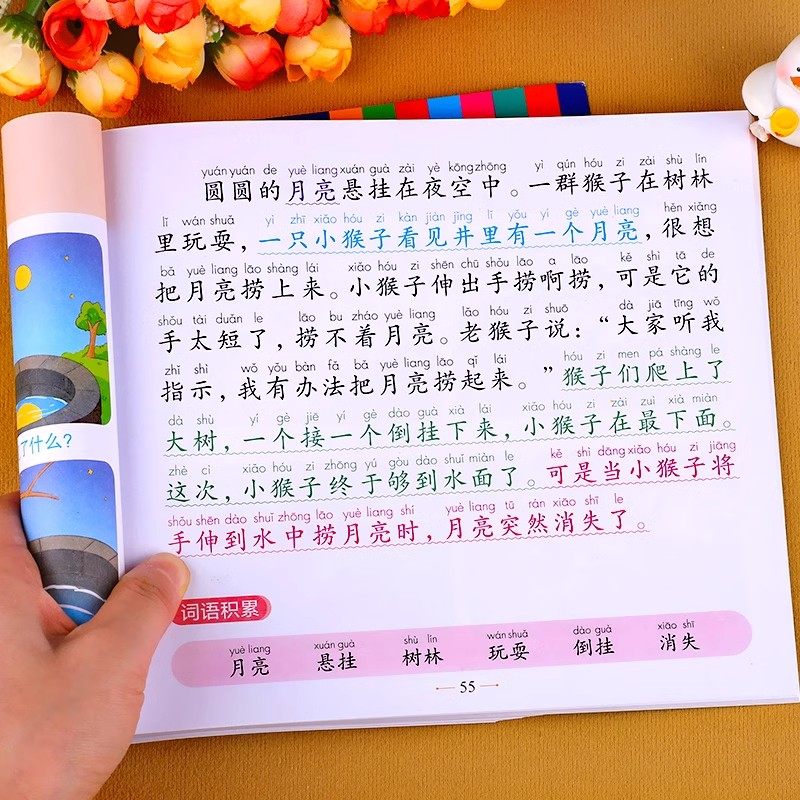 yuányuán de yuè liang xuán guà zài yè kōng zhōng yì qún hóu zi zài shù lín
圆圆的月亮悬挂在夜空中。一群猴子在树林
lǐ wán shuǎ yì zhī xiǎo hóu zi kàn jiàn jǐng lǐ yǒu yí gè yuè liang hěn xiǎng
里玩耍，一只小猴子看见井里有一个月亮，很想
bǎ yuè liang lāo shàng lái xiǎo hóu zi shēn chū shǒu lāo a lāo kě shì tā de
把月亮捞上来。小猴子伸出手捞啊捞，可是它的
shǒu tài duǎn le lāo bu zháo yuè liang lǎo hóu zi shuō dà jiā tīng wǒ
手太短了，捞不着月亮。老猴子说：“大家听我
zhǐ shì wǒ yǒu bàn fǎ bǎ yuè liang lāo qǐ lái hóu zi men pá shàng le
指示，我有办法把月亮捞起来。”猴子们爬上了
dà shù yí gè jiē yí gè dào guà xià lái xiǎo hóu zi zài zuì xià miàn
大树，一个接一个倒挂下来，小猴子在最下面。
zhè cì xiǎo hóu zi zhōng yú gòu dào shuǐ miàn le kě shì dāng xiǎo hóu zi jiāng
这次，小猴子终于够到水面了。可是当小猴子将
shǒu shēn dào shuǐ zhōng lāo yuè liang shí yuè liang tū rán xiāo shī le
手伸到水中捞月亮时，月亮突然消失了。
了什么？
词语积累
yuè liang xuán guà shù lín wán shuǎ dào guà xiāo shī
月亮 悬挂 树林 玩耍 倒挂 消失
55